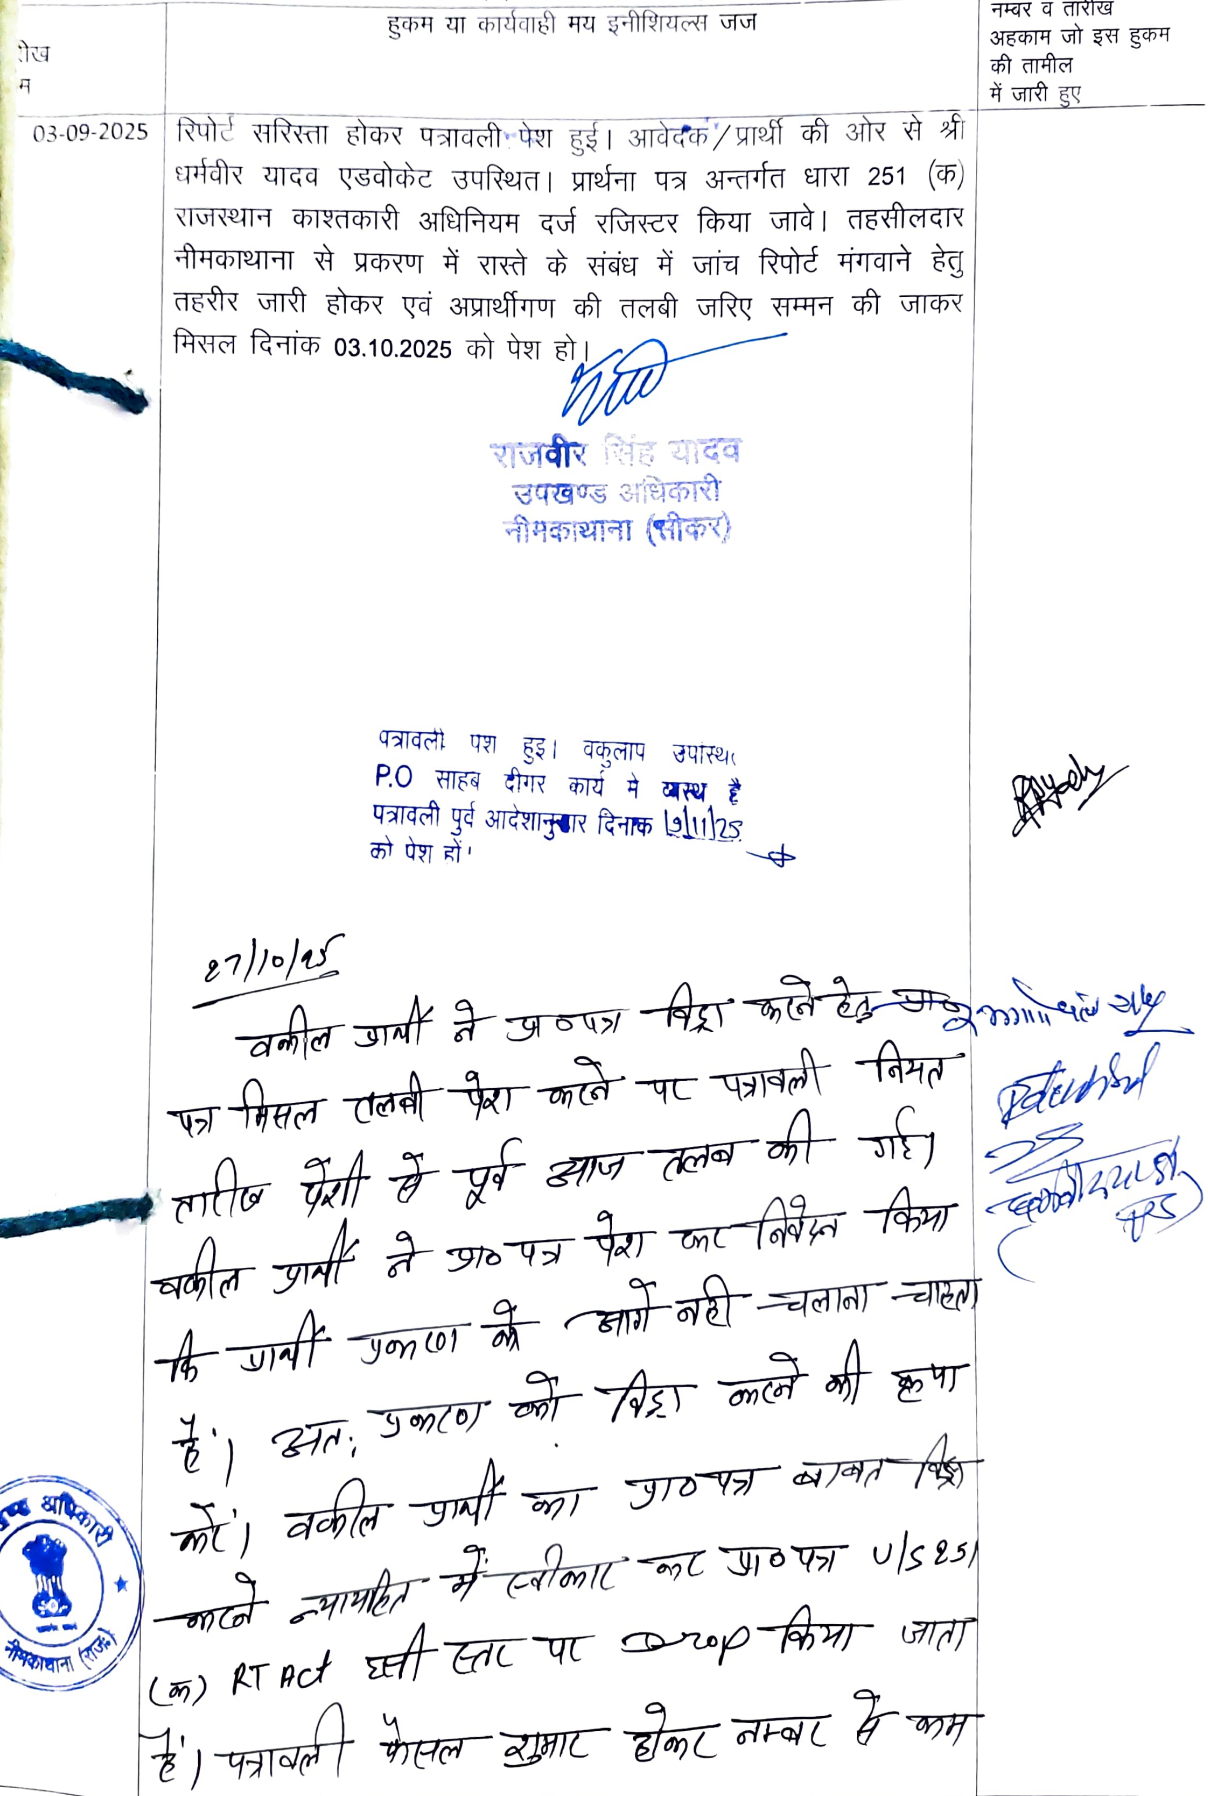 हुकम या कार्यवाही मय इनीशियल्स जज
नम्बर व तारीख
अहकाम जो इस हुकम
की तामील
में जारी हुए
रीख
म
03-09-2025
रिपोर्ट सरिस्ता होकर पत्रावली पेश हुई। आवेदक/प्रार्थी की ओर से श्री
धर्मवीर यादव एडवोकेट उपस्थित। प्रार्थना पत्र अन्तर्गत धारा 251 (क)
राजस्थान काश्तकारी अधिनियम दर्ज रजिस्टर किया जावे। तहसीलदार
नीमकाथाना से प्रकरण में रास्ते के संबंध में जांच रिपोर्ट मंगवाने हेतु
तहरीर जारी होकर एवं अप्रार्थीगण की तलबी जरिए सम्मन की जाकर
मिसल दिनांक 03.10.2025 को पेश हो।
राजवीर सिंह यादव
उपखण्ड अधिकारी
नीमकाथाना (सीकर)
पत्रावली पेश हुइ। वकुलाप उपस्थि
P.O साहब दीगर कार्य मे व्यस्थ है
पत्रावली पुर्व आदेशानुसार दिनाक 19/11/25
को पेश हों
27/10/25
वकील प्रार्थी ने प्रा०पत्र विड्रा करने हेतु
पत्र मिसल तलबी पेश करने पर पत्रावली नियत
तारीख पेशी से पूर्व आज तलब की गई।
वकील प्रार्थी ने प्रा० पत्र पेश कर निवेदन किया
कि प्रार्थी प्रकरण को आगे नही चलाना चाहता
है। अतः प्रकरण को विड्रा करने की कृपा
करें। वकील प्रार्थी का प्रा० पत्र बाबत विड्रा
करने न्यायहित में स्वीकार कर प्रा० पत्र U/S 251
(क) RT Act इसी स्तर पर Drop किया जाता
है। पत्रावली फैसल शुमार होकर नम्बर से कम
खण्ड अधिकारी
नीमकाथाना (राज.)